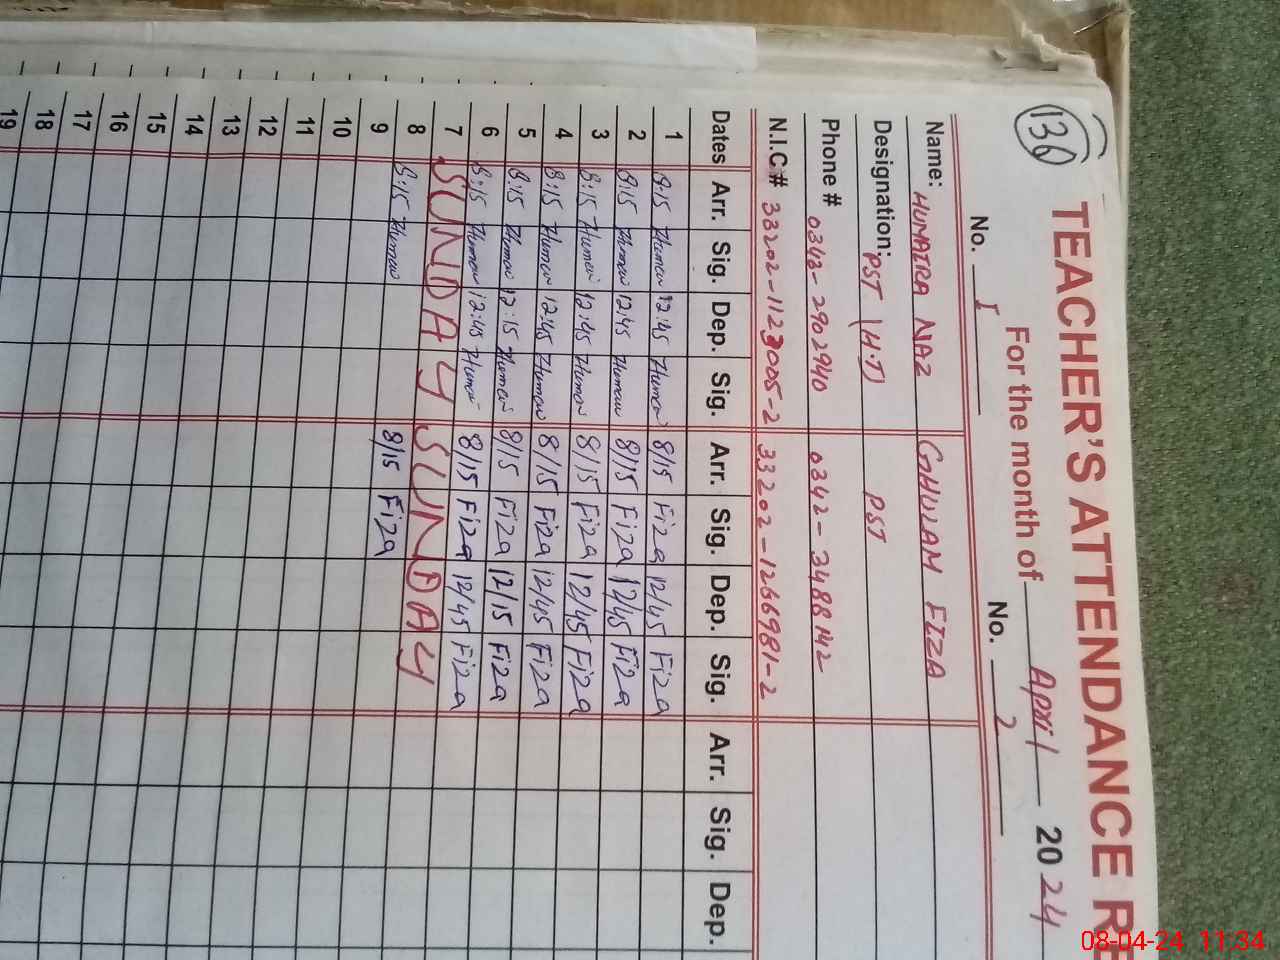 136
TEACHER'S ATTENDANCE RE
For the month of April 2024
No. 1 No. 2
Name: HUMAIRA NAZ GHULAM FIZA
Designation: PST (H.T) PST
Phone # 0343-2902940 0342-3488142
N.I.C.# 33202-1123005-2 33202-1266981-2
Dates Arr. Sig. Dep. Sig. Arr. Sig. Dep. Sig. Arr. Sig. Dep.
1 8:15 Humair 12:45 Humair 8/15 Fiza 12/45 Fiza
2 8:15 Humair 12:45 Humair 8/15 Fiza 12/45 Fiza
3 8:15 Humair 12:45 Humair 8/15 Fiza 12/45 Fiza
4 8:15 Humair 12:45 Humair 8/15 Fiza 12/45 Fiza
5 8:15 Humair 12:15 Humair 8/15 Fiza 12/15 Fiza
6 8:15 Humair 12:45 Humair 8/15 Fiza 12/45 Fiza
7 SUNDAY SUNDAY
8 8:15 Humair 8/15 Fiza
9
10
11
12
13
14
15
16
17
18
19
08-04-24 11:34